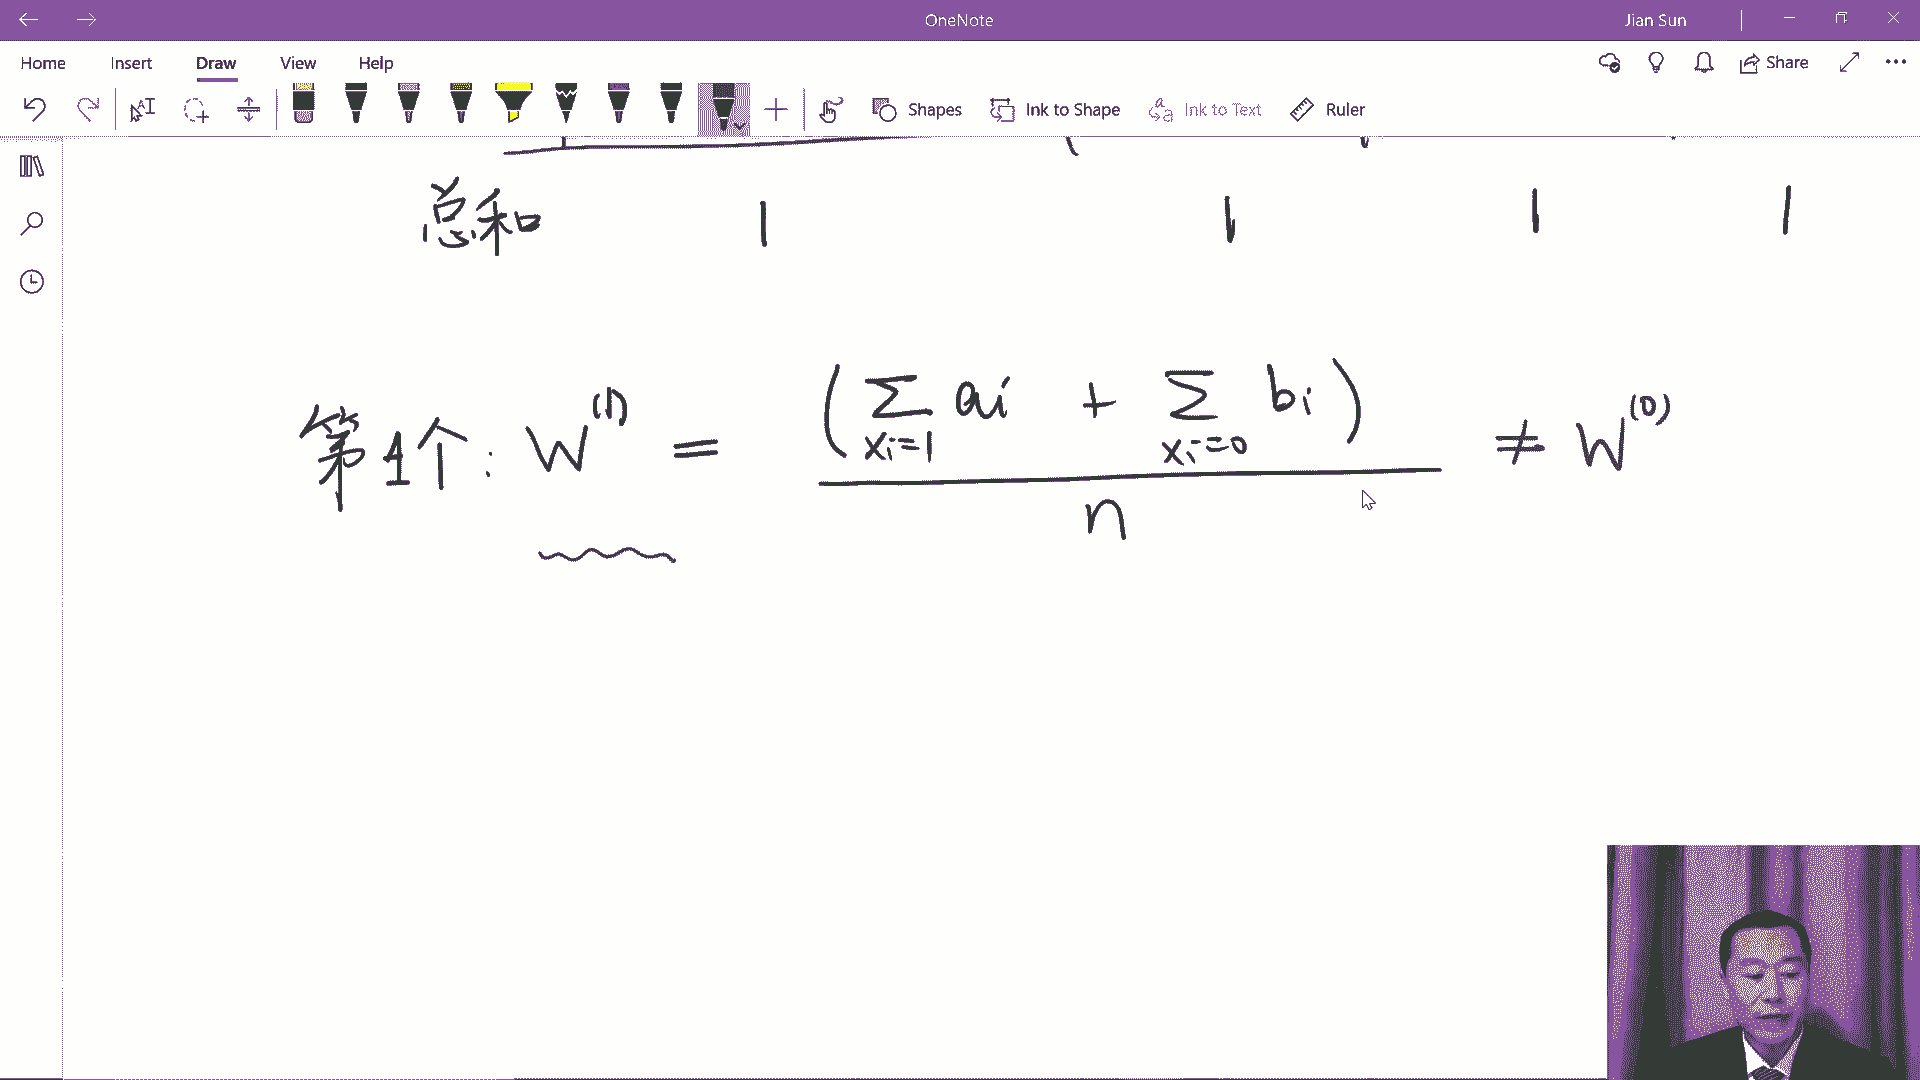 OneNote
Jian Sun
Home Insert Draw View Help
Share
Shapes Ink to Shape Ink to Text Ruler
总和 1 1 1 1
第1个: W^(1) = (∑_{xi=1} ai + ∑_{xi=0} bi) / n ≠ W^(0)